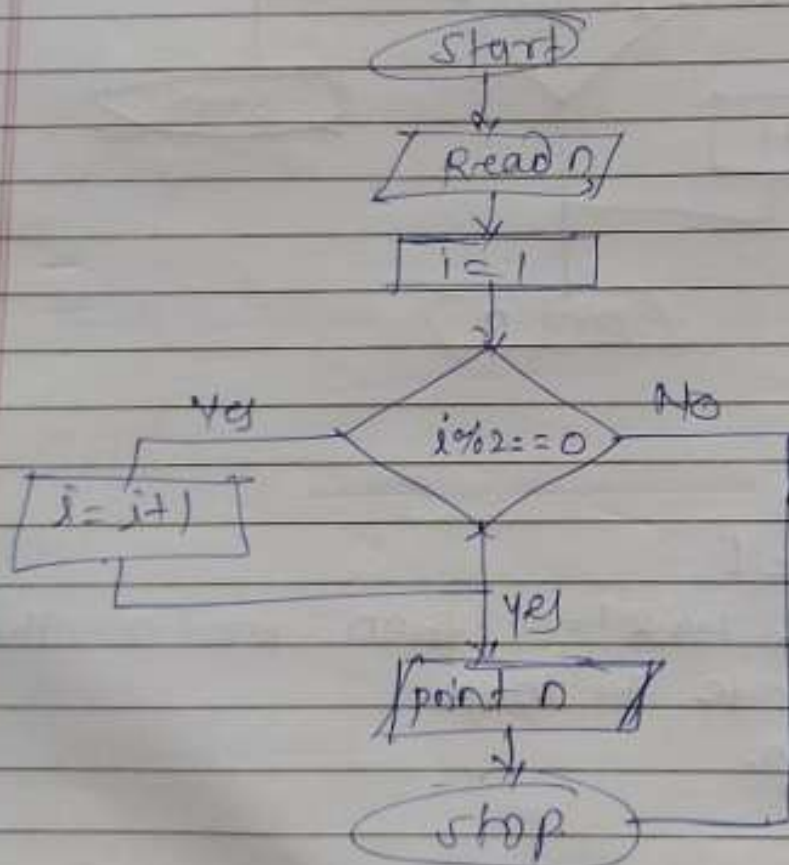 Start
Read n
i = 1
Yes
i%2==0
No
i = i+1
yes
print n
stop